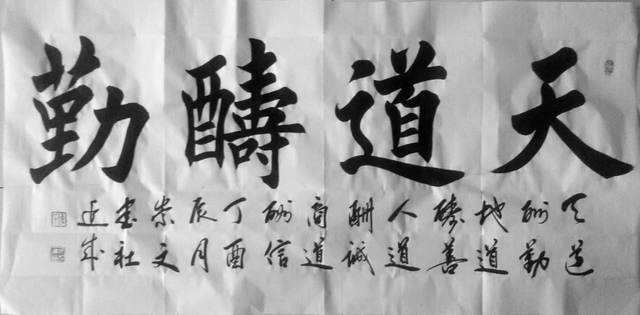 天道醻勤
天道
酬勤
地道
醻善
人道
酬诚
商道
酬信
丁酉
辰月
崇文
書社